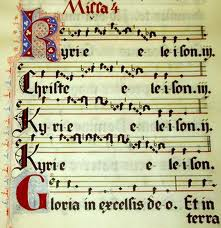 Missa 4
Kyrie e e leison. iij.
Christe e leison. iij.
Kyrie e e leison. ij.
Kyrie e leison.
Gloria in excelsis de-o. Et in
terra